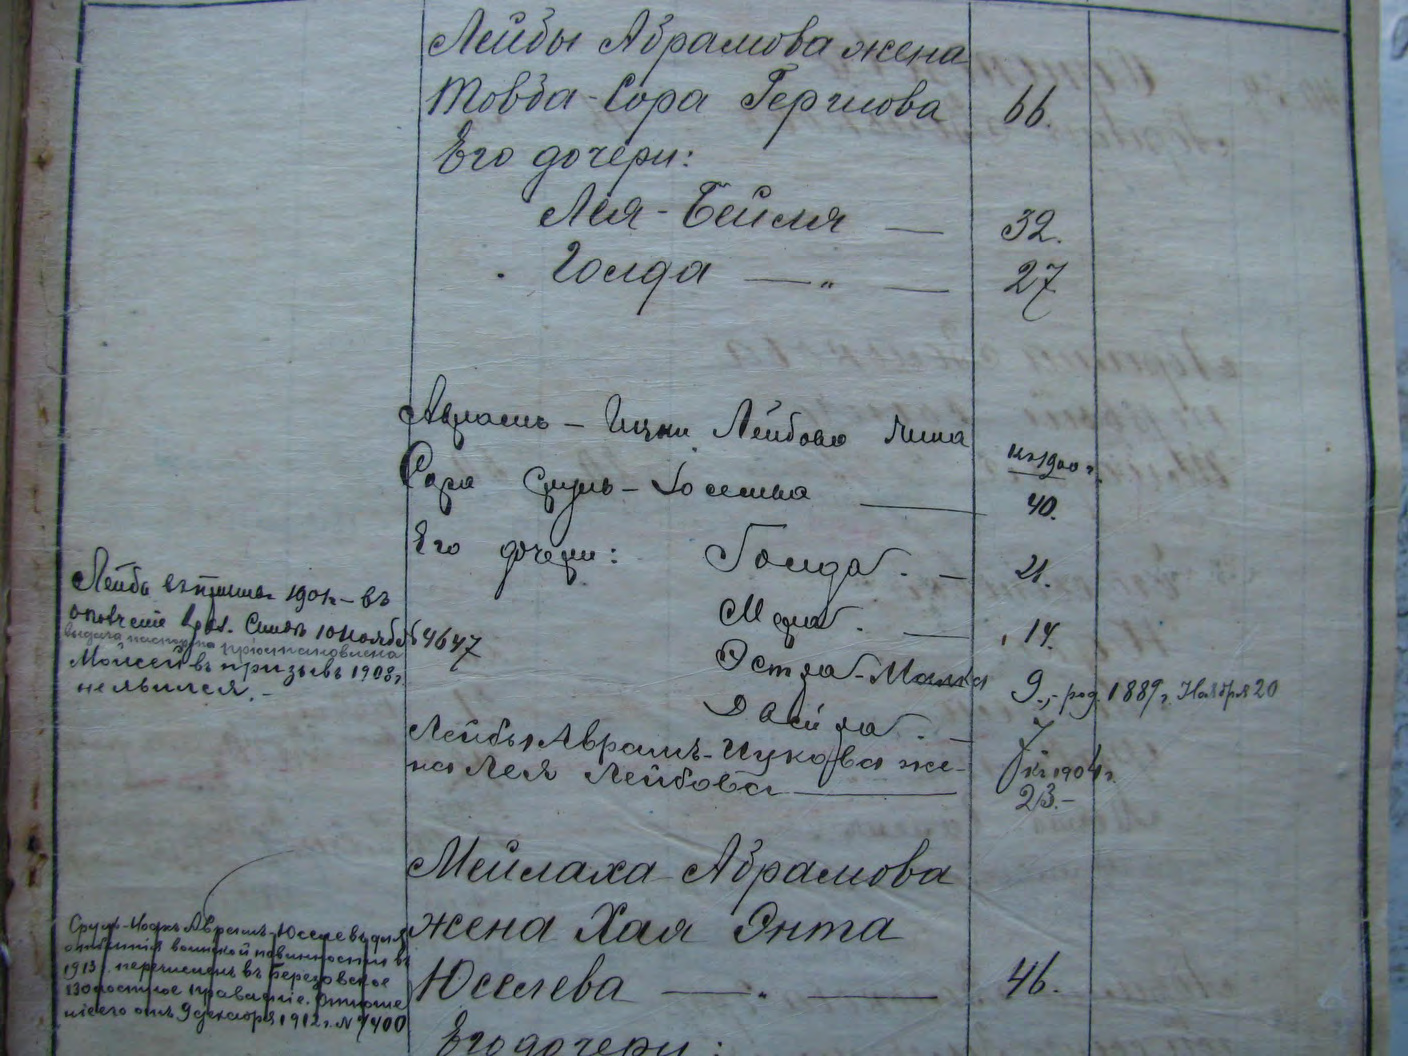 Лейбы Абрамова жена
Товба-Сора Гершова 66.
Его дочери:
Лея-Бейля — 32.
Голда — „ — 27
Аврамъ – Ицки Лейбова жена
къ 1900 г.
Сара Сруль – Іоселева — 40.
Его дочери: Голда. – 21.
Мера. — 14.
Эстра-Малка 9., – род. 1889 г. Ноября 20
Двейра. – 7
Лейбы Аврамъ-Ицкова же-
на Лея Лейбова — къ 1904 г.
23.–
Лейба въ 1901 г. – въ
ополченіе 10 Ноября 4647
выдача паспорта пріостановлена
Мойсей въ призывъ 1908 г.
не явился. –
Мейлаха Абрамова
жена Хая Энта
Юселева — „ — 46.
Его дочери:
Сруль-Ицкъ Аврамъ-Юселевъ для
отбытія воинской повинности въ
1913 г. перечисленъ въ Березовское
волостное правленіе. Отноше
ніе его отъ 9 декабря 1912 г. № 7400